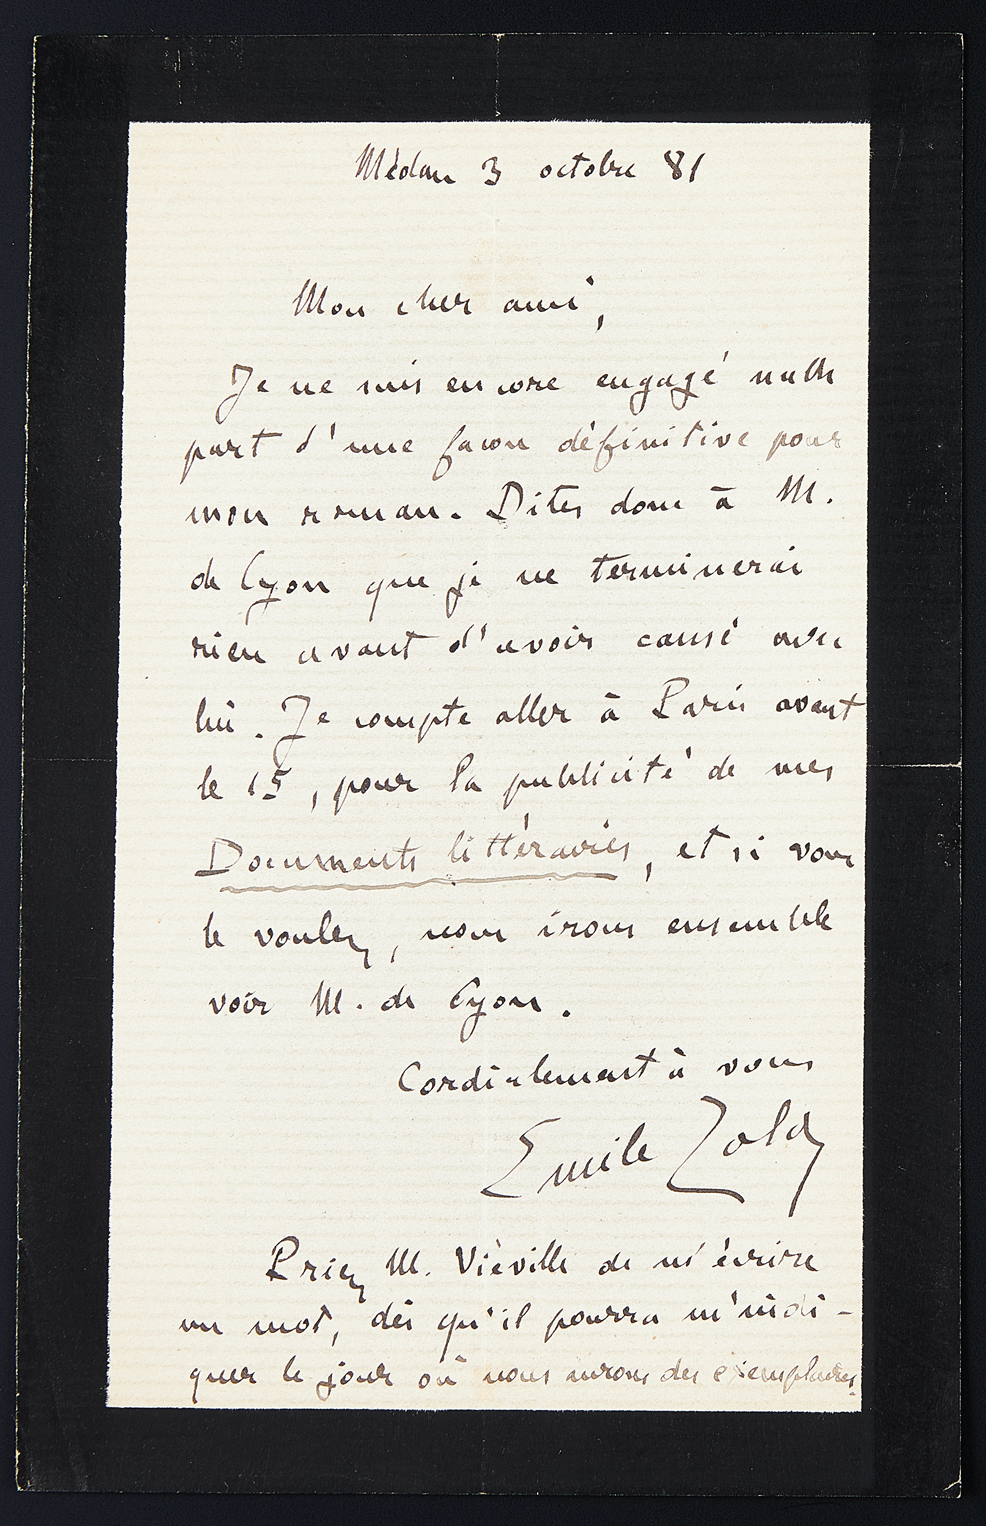 Médan 3 octobre 81
Mon cher ami,
Je ne suis encore engagé nulle
part d'une façon définitive pour
mon roman. Dites donc à M.
de Cyon que je ne terminerai
rien avant d'avoir causé avec
lui. Je compte aller à Paris avant
le 15, pour la publicité de mes
Documents littéraires, et si vous
le voulez, nous irons ensemble
voir M. de Cyon.
Cordialement à vous
Emile Zola
Priez M. Viéville de m'écrire
un mot, dès qu'il pourra m'indi-
quer le jour où nous aurons des exemplaires.